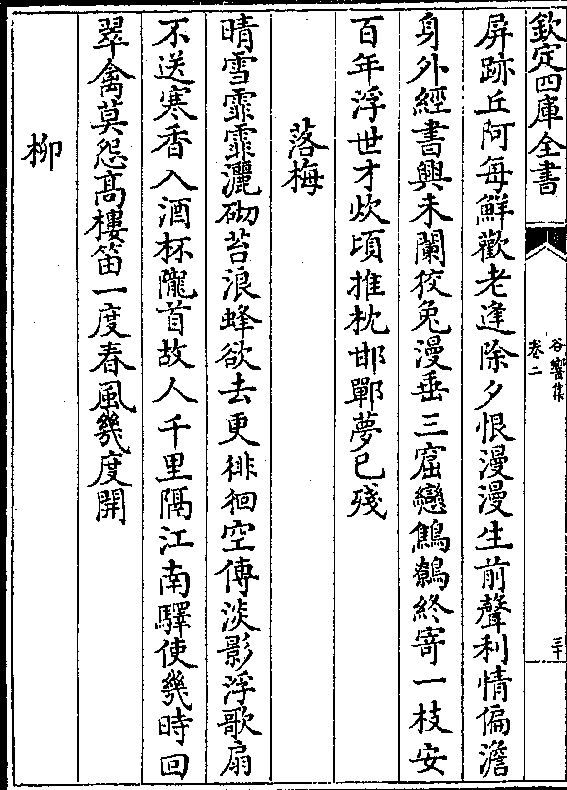 欽定四庫全書
谷響集
卷二
三十
屏跡丘阿每鮮歡老逢除夕恨漫漫生前聲利情偏澹
身外經書興未闌狡兔漫垂三窟戀鷦鷯終寄一枝安
百年浮世才炊頃推枕邯鄲夢已殘
落梅
晴雪霏霏灑砌苔浪蜂欲去更徘徊空傳淡影浮歌扇
不送寒香入酒杯隴首故人千里隔江南驛使幾時回
翠禽莫怨髙樓笛一度春風幾度開
柳